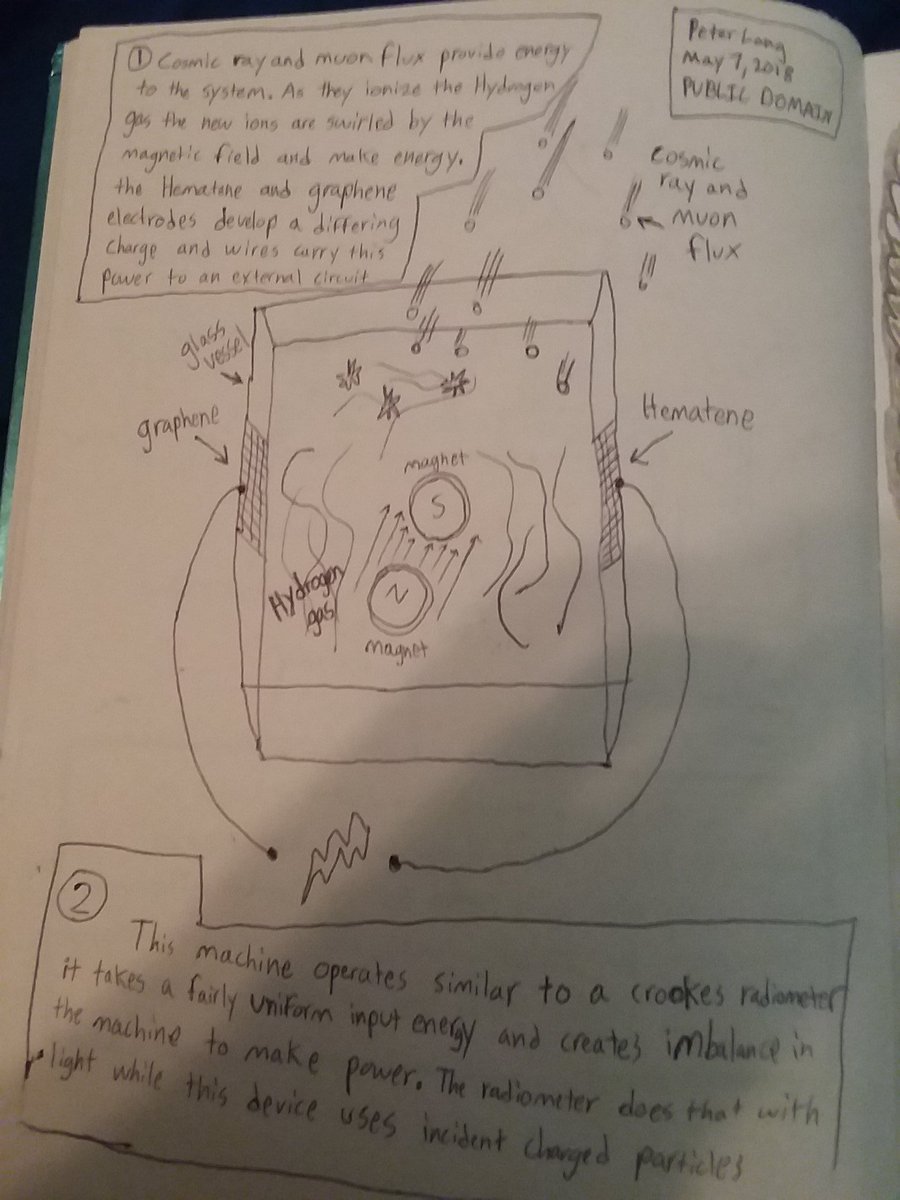 ① Cosmic ray and muon flux provide energy
to the system. As they ionize the Hydrogen
gas the new ions are swirled by the
magnetic field and make energy.
the Hematene and graphene
electrodes develop a differing
charge and wires carry this
power to an external circuit
Peter Lang
May 7, 2018
PUBLIC DOMAIN
Cosmic
ray and
muon
flux
glass
vessel
graphene
Hematene
magnet
S
N
magnet
Hydrogen
gas
②
This machine operates similar to a crookes radiometer
it takes a fairly uniform input energy and creates imbalance in
the machine to make power. The radiometer does that with
light while this device uses incident charged particles